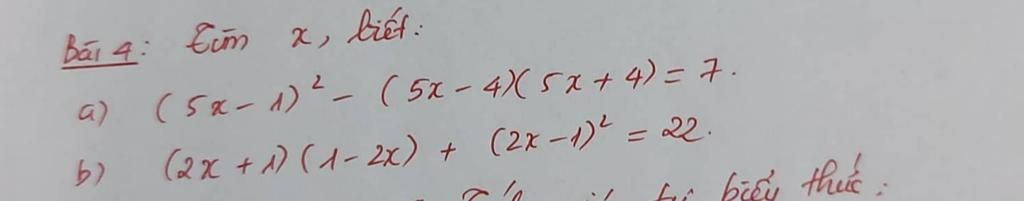 Bài 4: Tìm x, biết:
a) (5x - 1)² - (5x - 4)(5x + 4) = 7.
b) (2x + 1)(1 - 2x) + (2x - 1)² = 22.
biểu thức: